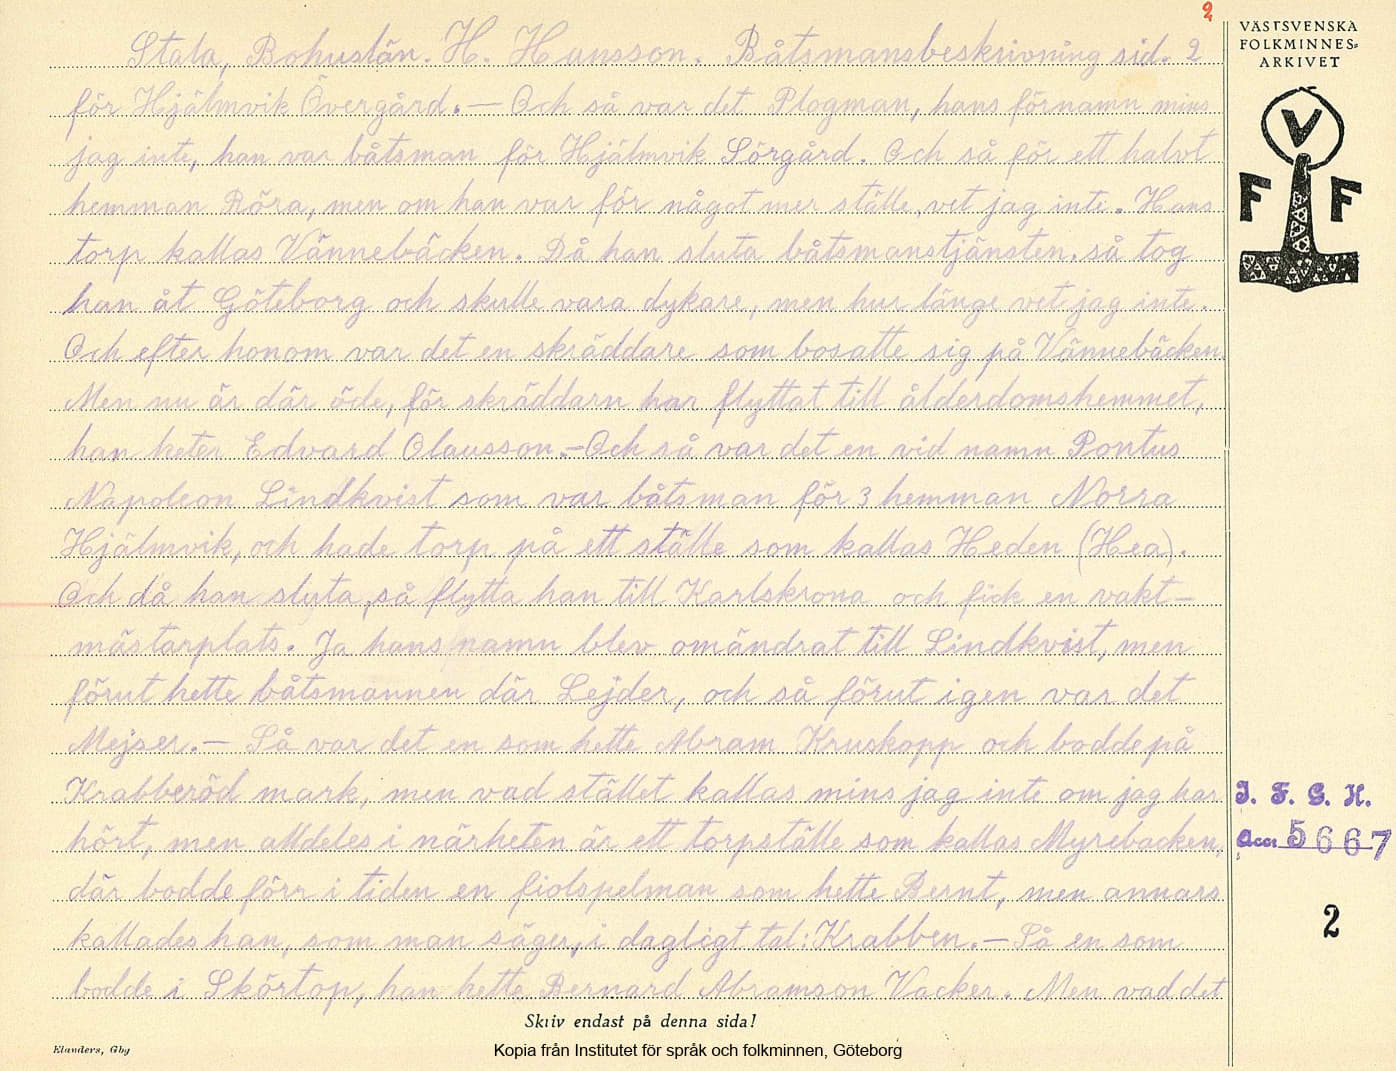 2
VÄSTSVENSKA
FOLKMINNES-
ARKIVET
V
F F
Stala, Bohuslän. H. Hansson. Båtsmansbeskrivning sid. 2
för Hjälmvik Övergård. — Och så var det Plogman, hans förnamn mins
jag inte, han var båtsman för Hjälmvik Sörgård. Och så för ett halvt
hemman Röra, men om han var för något mer ställe, vet jag inte. Hans
torp kallas Vännebäcken. Då han sluta båtsmanstjänsten, så tog
han åt Göteborg och skulle vara dykare, men hur länge vet jag inte.
Och efter honom var det en skräddare som bosatte sig på Vännebäcken.
Men nu är där öde, för skräddarn har flyttat till ålderdomshemmet,
han heter Edvard Olausson. — Och så var det en vid namn Pontus
Napoleon Lindkvist som var båtsman för 3 hemman Norra
Hjälmvik, och hade torp på ett ställe som kallas Heden (Hea).
Och då han sluta, så flytta han till Karlskrona och fick en vakt-
mästarplats. Ja hans namn blev omändrat till Lindkvist, men
förut hette båtsmannen där Lejder, och så förut igen var det
Mejser. — Så var det en som hette Abram Kruskopp och bodde på
Krabberöd mark, men vad stället kallas mins jag inte om jag har
hört, men alldeles i närheten är ett torpställe som kallas Myrebacken,
där bodde förr i tiden en fiolspelman som hette Bernt, men annars
kallades han, som man säger, i dagligt tal: Krabben. — Så en som
bodde i Skörtop, han hette Bernard Abramson Vacker. Men vad det
I. F. G. H.
Acc. 5667
2
Skriv endast på denna sida!
Elanders, Gbg
Kopia från Institutet för språk och folkminnen, Göteborg